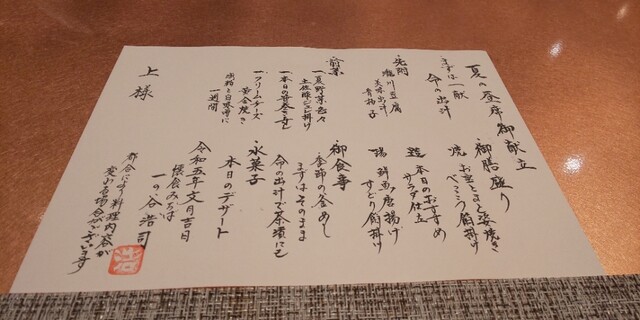 夏の昼席御献立
まずは一献
命の出汁
・先附
瀧川豆腐
美味出汁
青柚子
・前菜
一、夏野菜色々
土佐酢ジュレ掛け
一、本日の肴
一、クリームチーズ
黄金焼き
一週間
・御膳盛り
焼
べっこう餡掛け
造 本日のおすすめ
サラダ仕立
揚 鮮魚唐揚げ
すだち餡掛け
・御食事
季節の釜めし
まずはそのまま
命の出汁で茶漬にも
・水菓子
本日のデザート
令和五年文月吉日
懐食みちば
一の谷浩司
都合により料理内容が
変わる場合がございます
上様